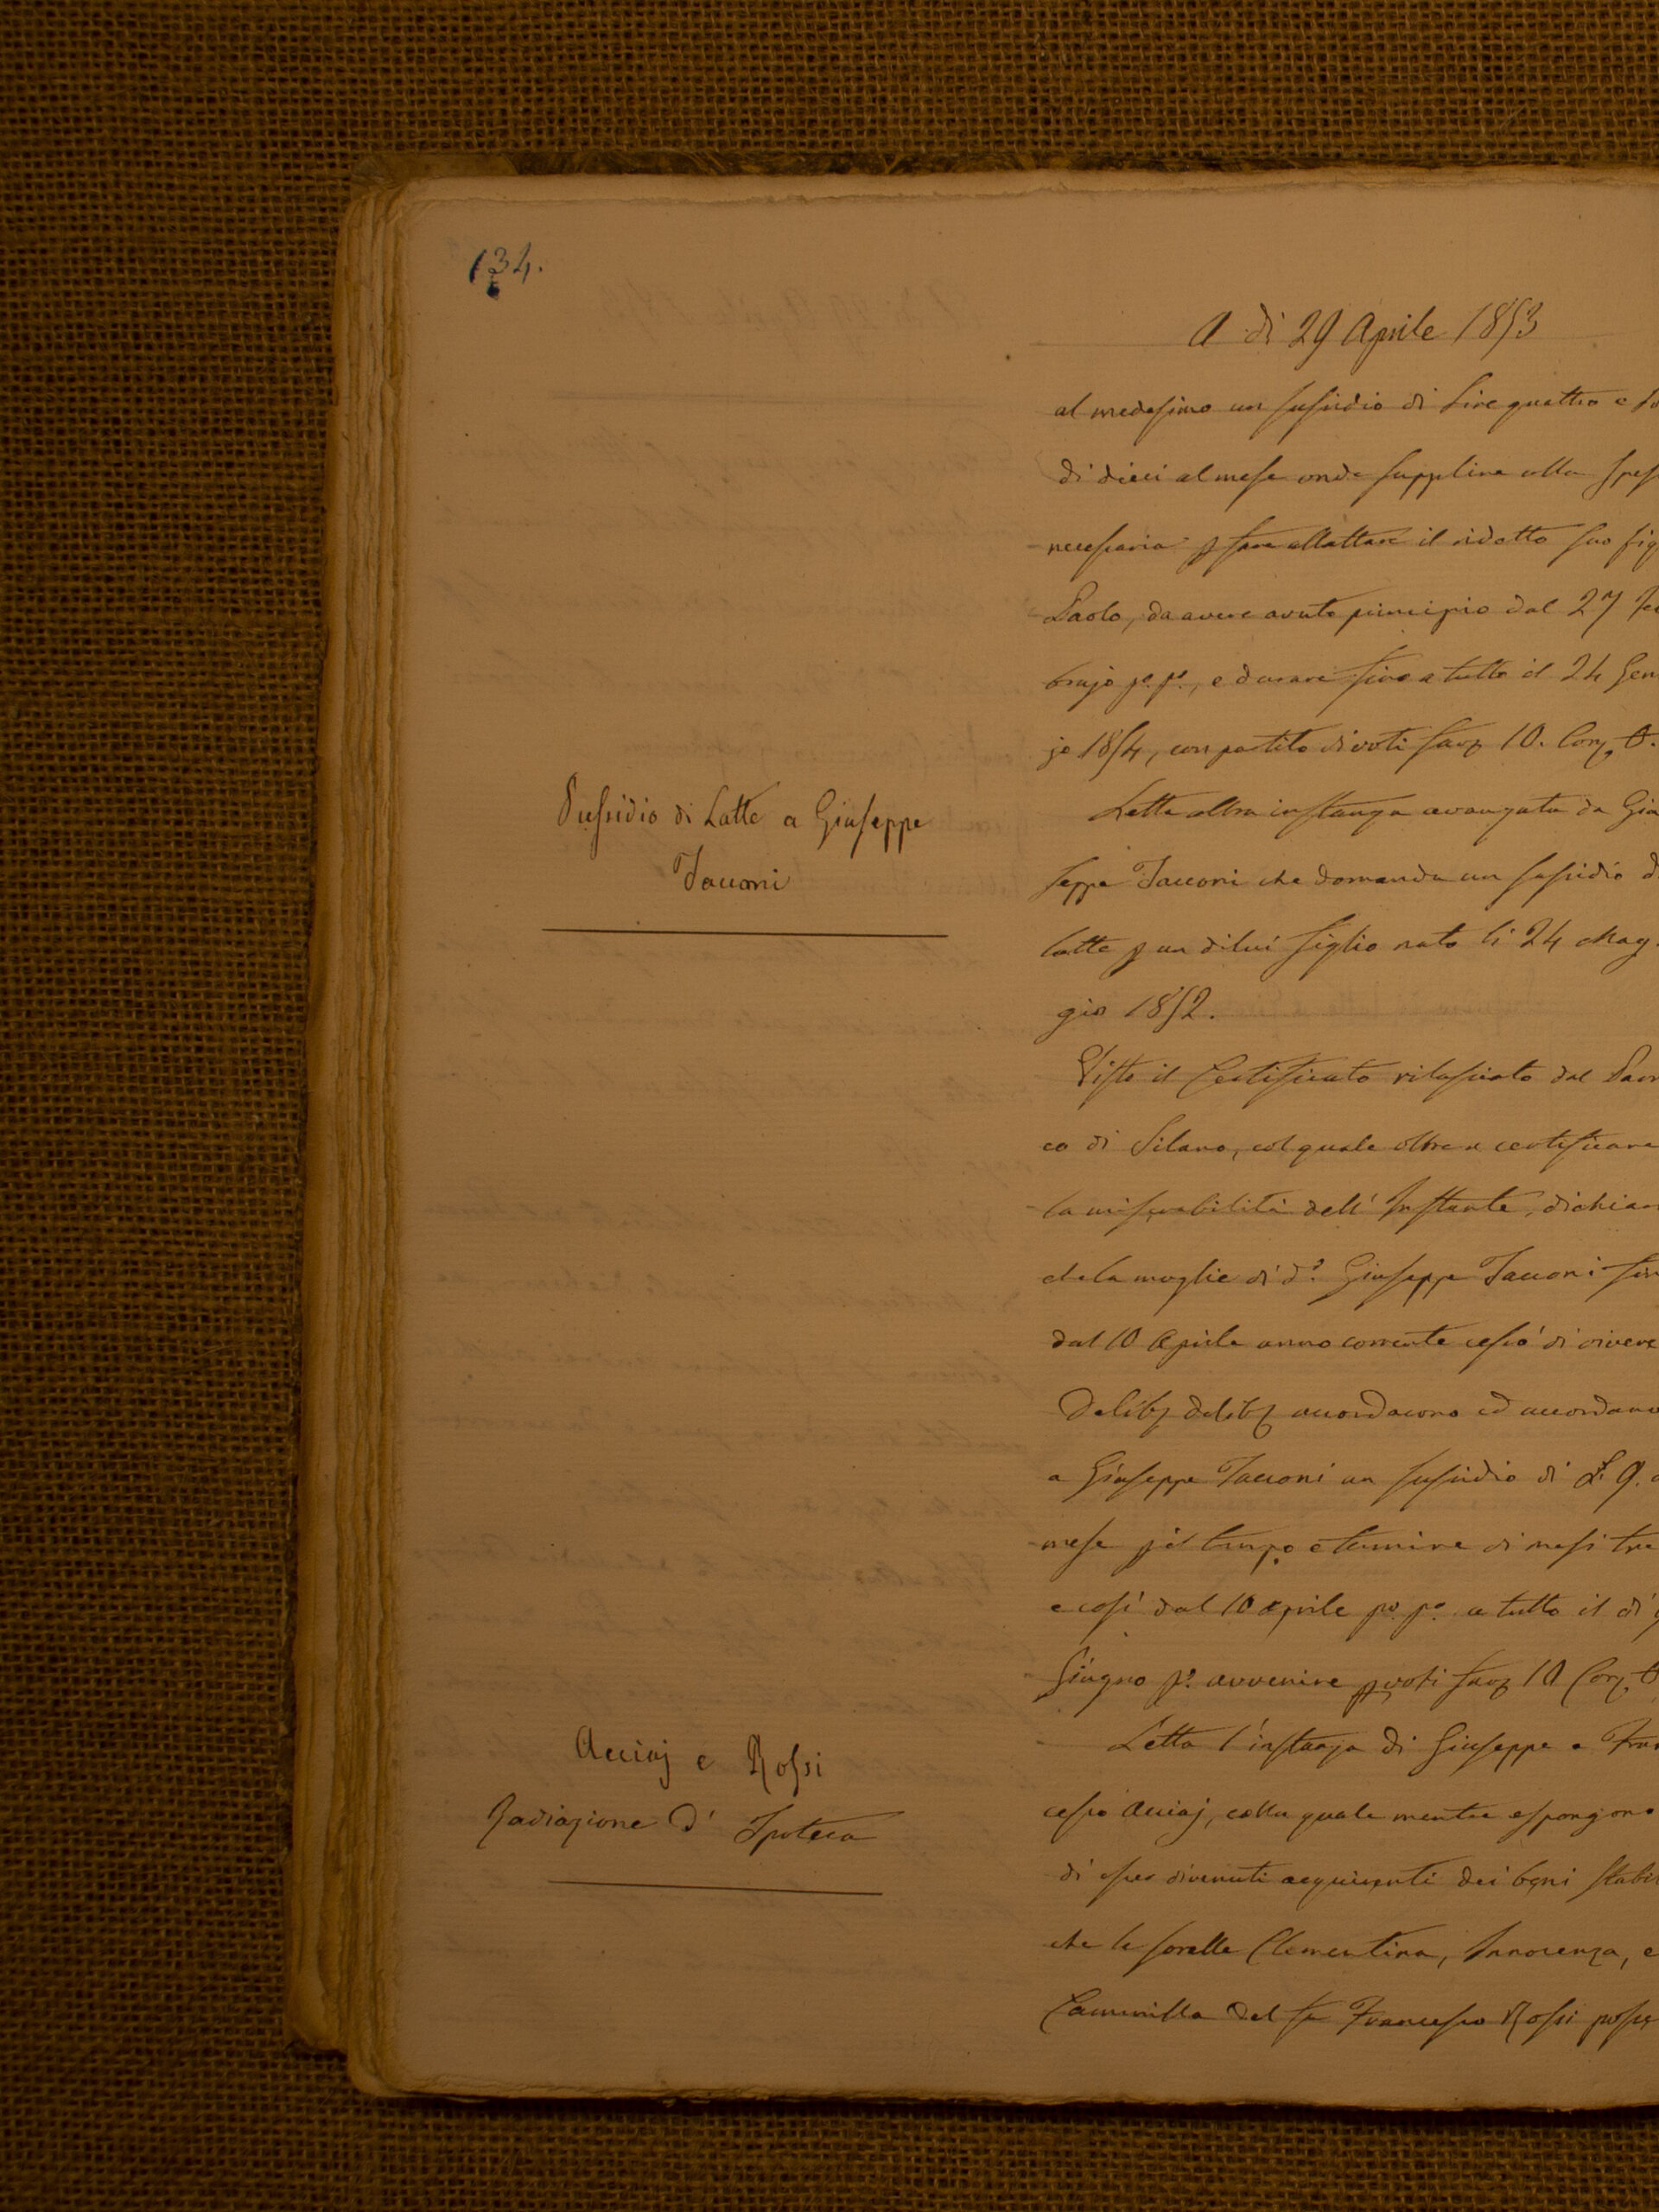 134.
A dì 29 Aprile 1853
al medesimo un sussidio di Lire quattro e So
di dieci al mese onde supplire alla spes
necessaria p fare allattare il ridetto suo fig
Paolo, da avere avuto principio dal 27 Feb
brajo po. po., e durare fino a tutto il 24 Gen
jo 1854, con partito di voti favz 10. Conz 0.
Sussidio di Latte a Giuseppe
Tacconi
Letta altra instanza avanzata da Giu
seppe Tacconi che domanda un sussidio d
latte p un di lui figlio nato li 24 Mag
gio 1852.
Visto il Certificato rilasciato dal Parro
co di Silano, col quale oltre a certificare
la miserabilità dell' Instante, dichiar
che la moglie di do. Giuseppe Tacconi fin
dal 10 Aprile anno corrente cessò di vivere
Delibz delibz accordarono ed accordano
a Giuseppe Tacconi un sussidio di £. 9. a
mese pel tempo e termine di mesi tre
e così dal 10 Aprile po. po. a tutto il dì 9
Giugno po. avvenire p voti favz 10 Conz 0
Acciaj e Rossi
Radiazione d' Ipoteca
Letta l'instanza di Giuseppe e Fran
cesco Acciaj, colla quale mentre espongono
di esser divenuti acquirenti dei beni stabil
che le sorelle Clementina, Innocenza, e
Cammilla del fu Francesco Rossi posse